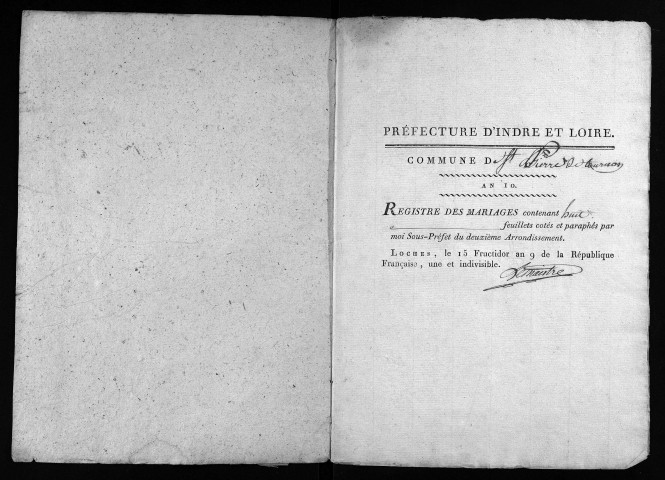 PRÉFECTURE D'INDRE ET LOIRE.
COMMUNE De St Pierre de tournon
AN 10.
REGISTRE DES MARIAGES contenant huit
feuillets cotés et paraphés par
moi Sous-Préfet du deuxième Arrondissement.
LOCHES, le 15 Fructidor an 9 de la République
Française, une et indivisible.